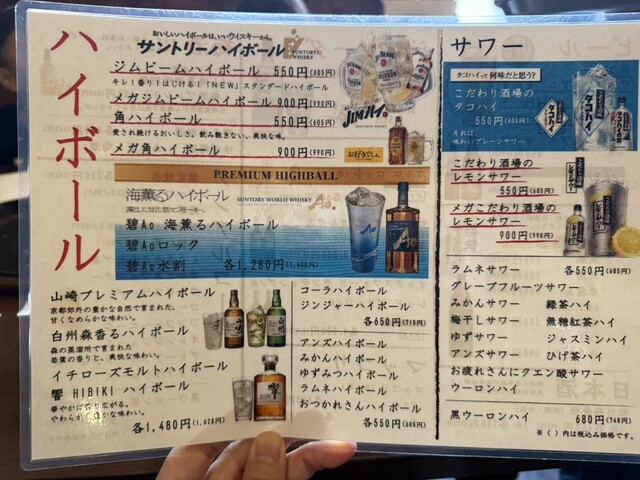 ハイボール
おいしいハイボールは、いいウイスキーから。
サントリーハイボール
SUNTORY
WHISKY
ジムビームハイボール 550円(605円)
キレ!香り!はじける!「NEW」スタンダードハイボール
メガジムビームハイボール 900円(990円)
角ハイボール 550円(605円)
愛され続けるおいしさ。飲み飽きない、爽快な味。
メガ角ハイボール 900円(990円)
JIMハイ。
お好きでしょ
PREMIUM HIGHBALL
海薫るハイボール
SUNTORY WORLD WHISKY
Ao
碧Ao 海薫るハイボール
碧Aoロック
碧Ao水割 各1,280円
山崎プレミアムハイボール
京都郊外の豊かな自然で育まれた、
甘くなめらかな味わい。
白州森香るハイボール
森の蒸溜所で育まれた
若葉の香りと、爽快な味。
イチローズモルトハイボール
響 HIBIKI ハイボール
華やかに 広がる。
やわらか な味わい。
各1,480円(1,628円)
コーラハイボール
ジンジャーハイボール
各650円(715円)
アンズハイボール
みかんハイボール
ゆずみつハイボール
ラムネハイボール
おつかれさんハイボール
各550円(605円)
サワー
タコハイって何味だと思う?
こだわり酒場の
タコハイ
550円(605円)
それは、
味わいプレーンサワー
タコハイ
こだわり酒場の
レモンサワー
550円(605円)
メガこだわり酒場の
レモンサワー
900円(990円)
ラムネサワー 各550円(605円)
グレープフルーツサワー
みかんサワー 緑茶ハイ
梅干しサワー 無糖紅茶ハイ
ゆずサワー ジャスミンハイ
アンズサワー ひげ茶ハイ
お疲れさんにクエン酸サワー
ウーロンハイ
黒ウーロンハイ 680円(748円)
※( )内は税込み価格です。